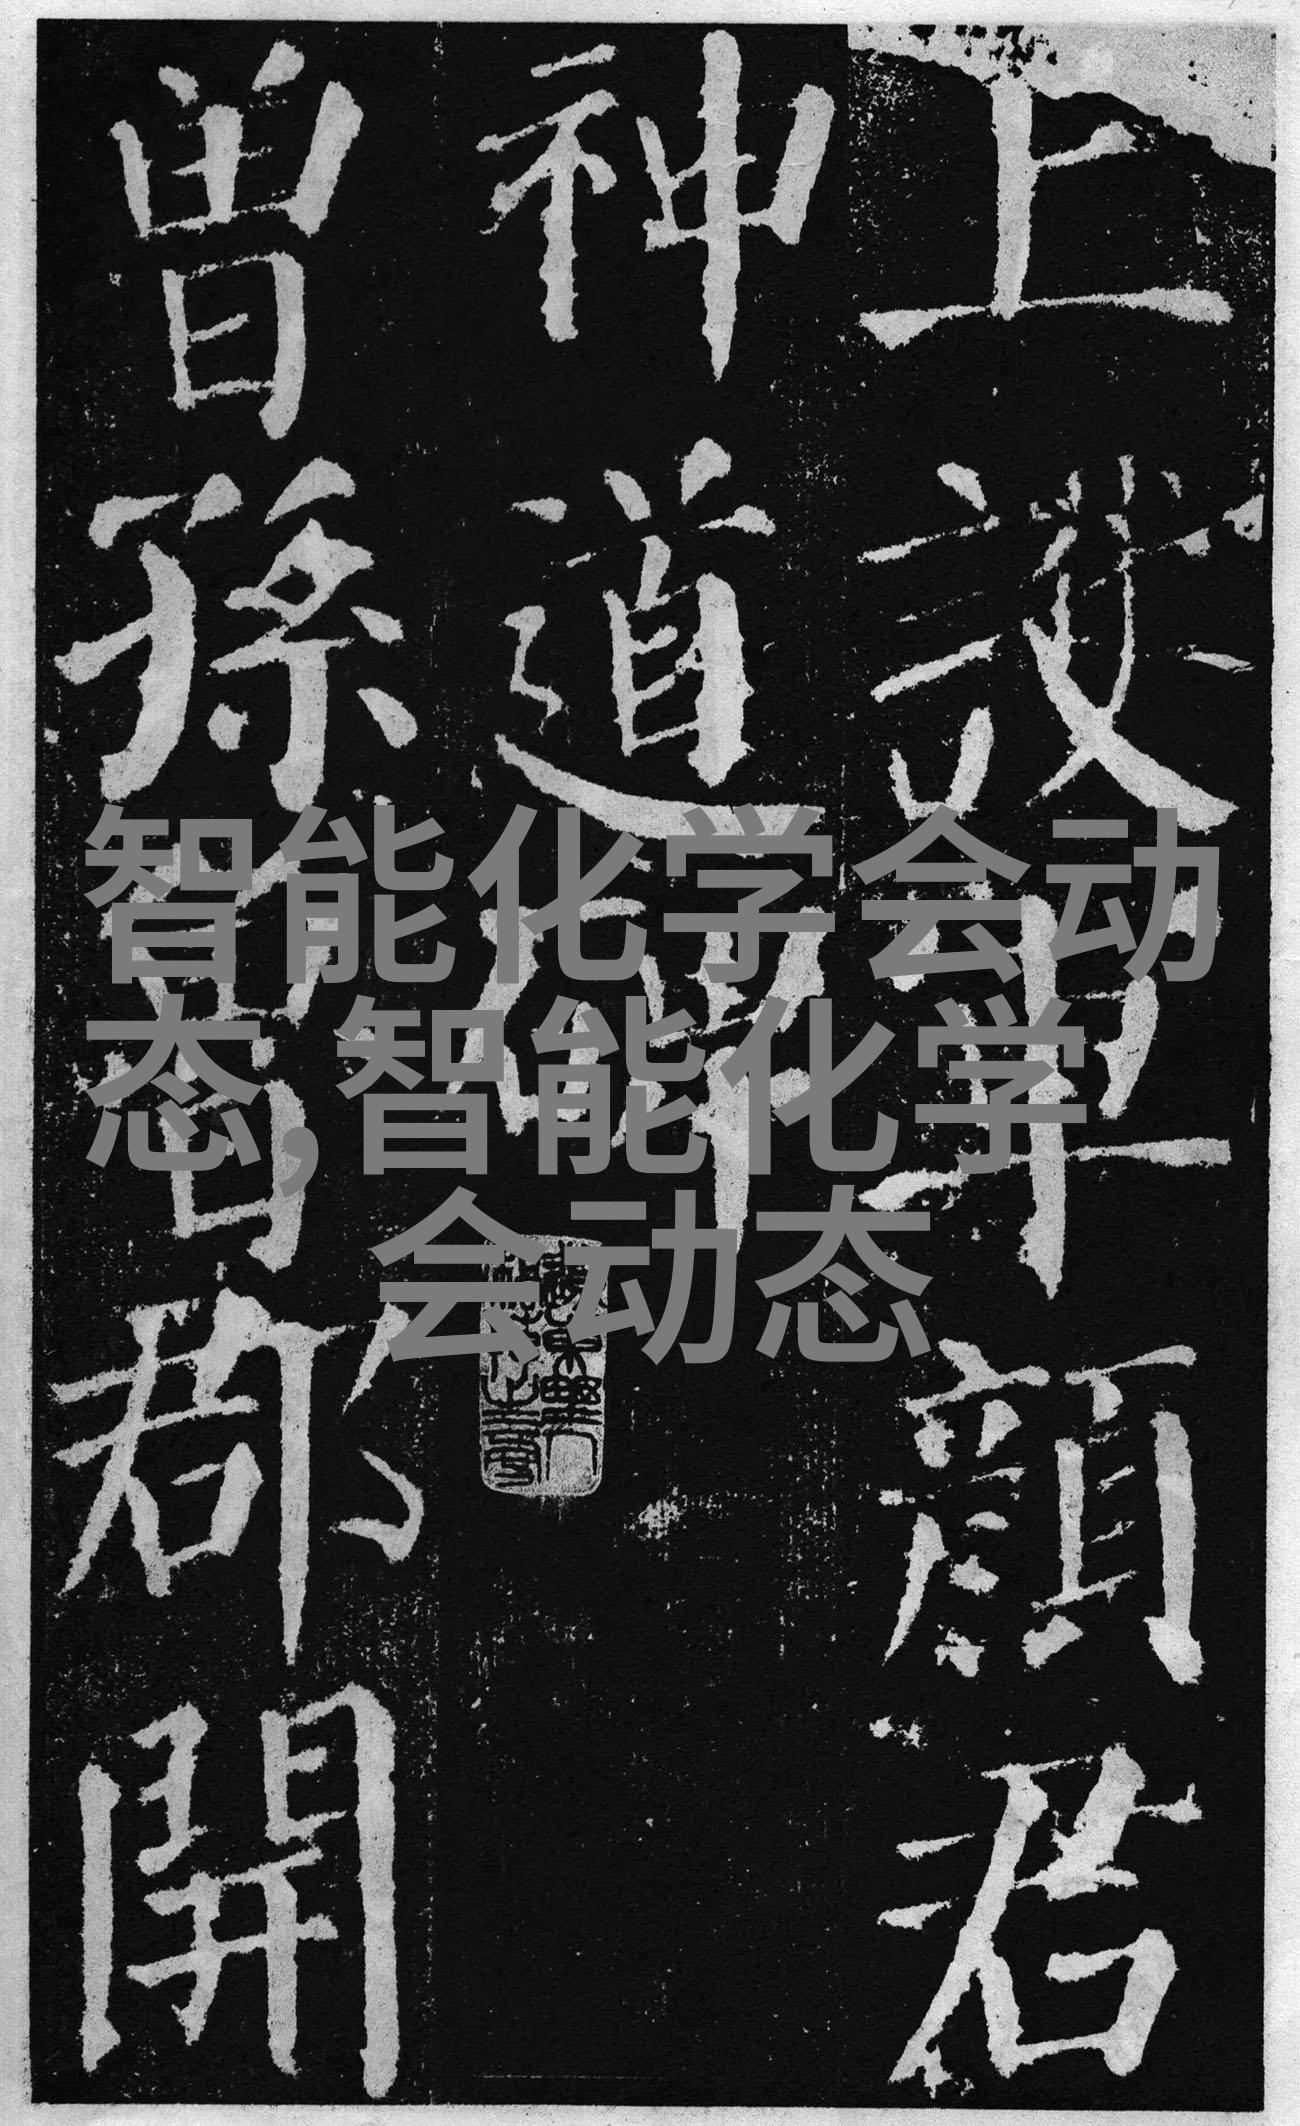 上護軍顏君
神道碑
曾孫魯郡開
智能化学会动
态,智能化学
会动态